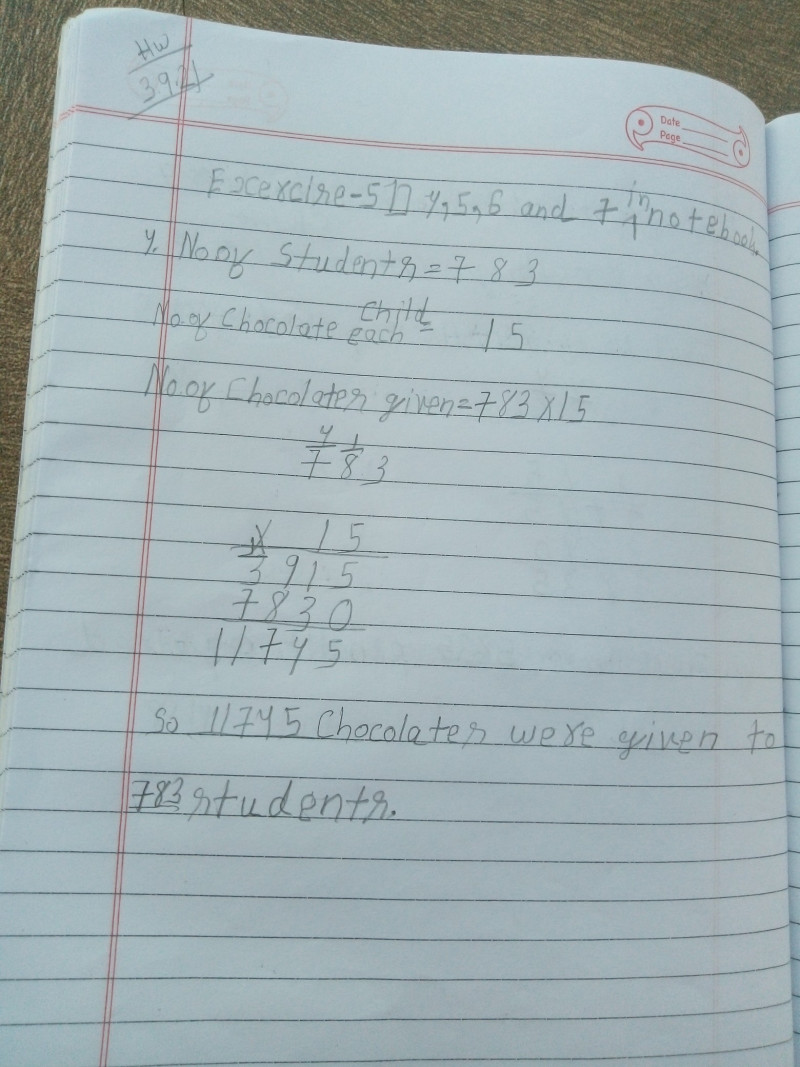 HW
3.9.21
Date
Page
Excercise-5D 4,5,6 and 7 in notebook.
4. No of Students = 783
No. of Chocolate each child = 15
No of Chocolates given = 783 x 15
4 1
783
x 15
3915
7830
11745
So 11745 Chocolates were given to
783 students.